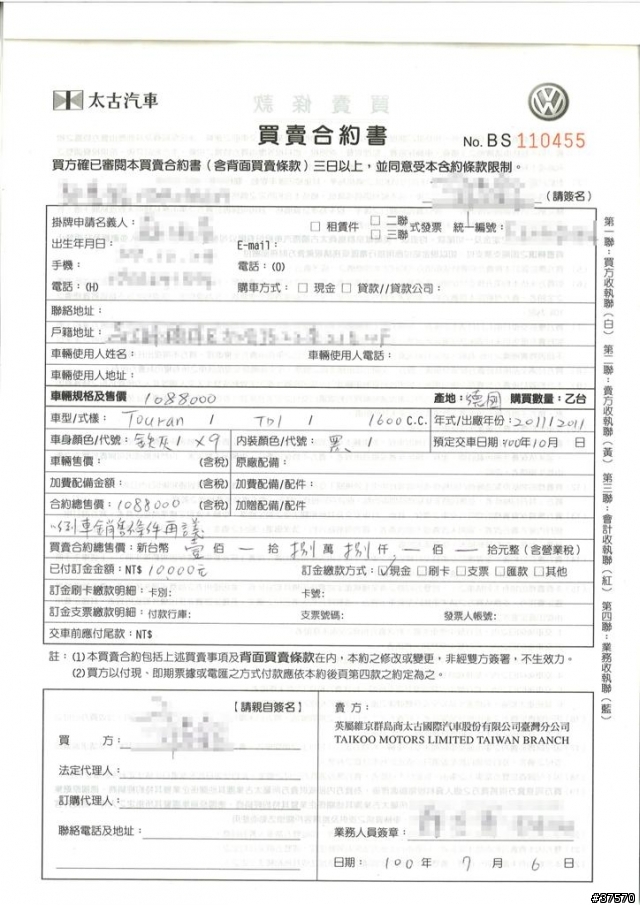 太古汽車
買賣合約書
No. BS 110455
買方確已審閱本買賣合約書（含背面買賣條款）三日以上，並同意受本合約條款限制。
（請簽名）
掛牌申請名義人：
□ 租賃件 □ 二聯 □ 三聯 式發票 統一編號：
出生年月日： E-mail：
手機： 電話：(O)
電話：(H) 購車方式：□ 現金 □ 貸款//貸款公司：
聯絡地址：
戶籍地址：
車輛使用人姓名： 車輛使用人電話：
車輛使用人地址：
車輛規格及售價 1088000 產地：德國 購買數量：乙台
車型/式樣： Touran / TDI / 1600 C.C. 年式/出廠年份：2011/2011
車身顏色/代號：鈦灰 / X9 內裝顏色/代號：黑 / 預定交車日期 100年10月 日
車輛售價： (含稅) 原廠配備：
加費配備金額： (含稅) 加費配備/配件：
合約總售價：1088000 (含稅) 加贈配備/配件
倒車銷售條件再議
買賣合約總售價：新台幣 壹 佰 一 拾 捌 萬 捌 仟 一 佰 一 拾元整(含營業稅)
已付訂金金額：NT$ 10,000元 訂金繳款方式：☑現金 □刷卡 □支票 □匯款 □其他
訂金刷卡繳款明細：卡別： 卡號：
訂金支票繳款明細：付款行庫： 支票號碼： 發票人帳號：
交車前應付尾款：NT$
註：(1)本買賣合約包括上述買賣事項及背面買賣條款在內，本約之修改或變更，非經雙方簽署，不生效力。
(2)買方以付現、即期票據或電匯之方式付款應依本約後頁第四款之約定為之。
【請親自簽名】
買 方：
法定代理人：
訂購代理人：
聯絡電話及地址：
賣方：
英屬維京群島商太古國際汽車股份有限公司臺灣分公司
TAIKOO MOTORS LIMITED TAIWAN BRANCH
業務人員簽章：
日期： 100 年 7 月 6 日
第一聯：買方收執聯（白） 第二聯：賣方收執聯（黃） 第三聯：會計收執聯（紅） 第四聯：業務收執聯（藍）
#37570